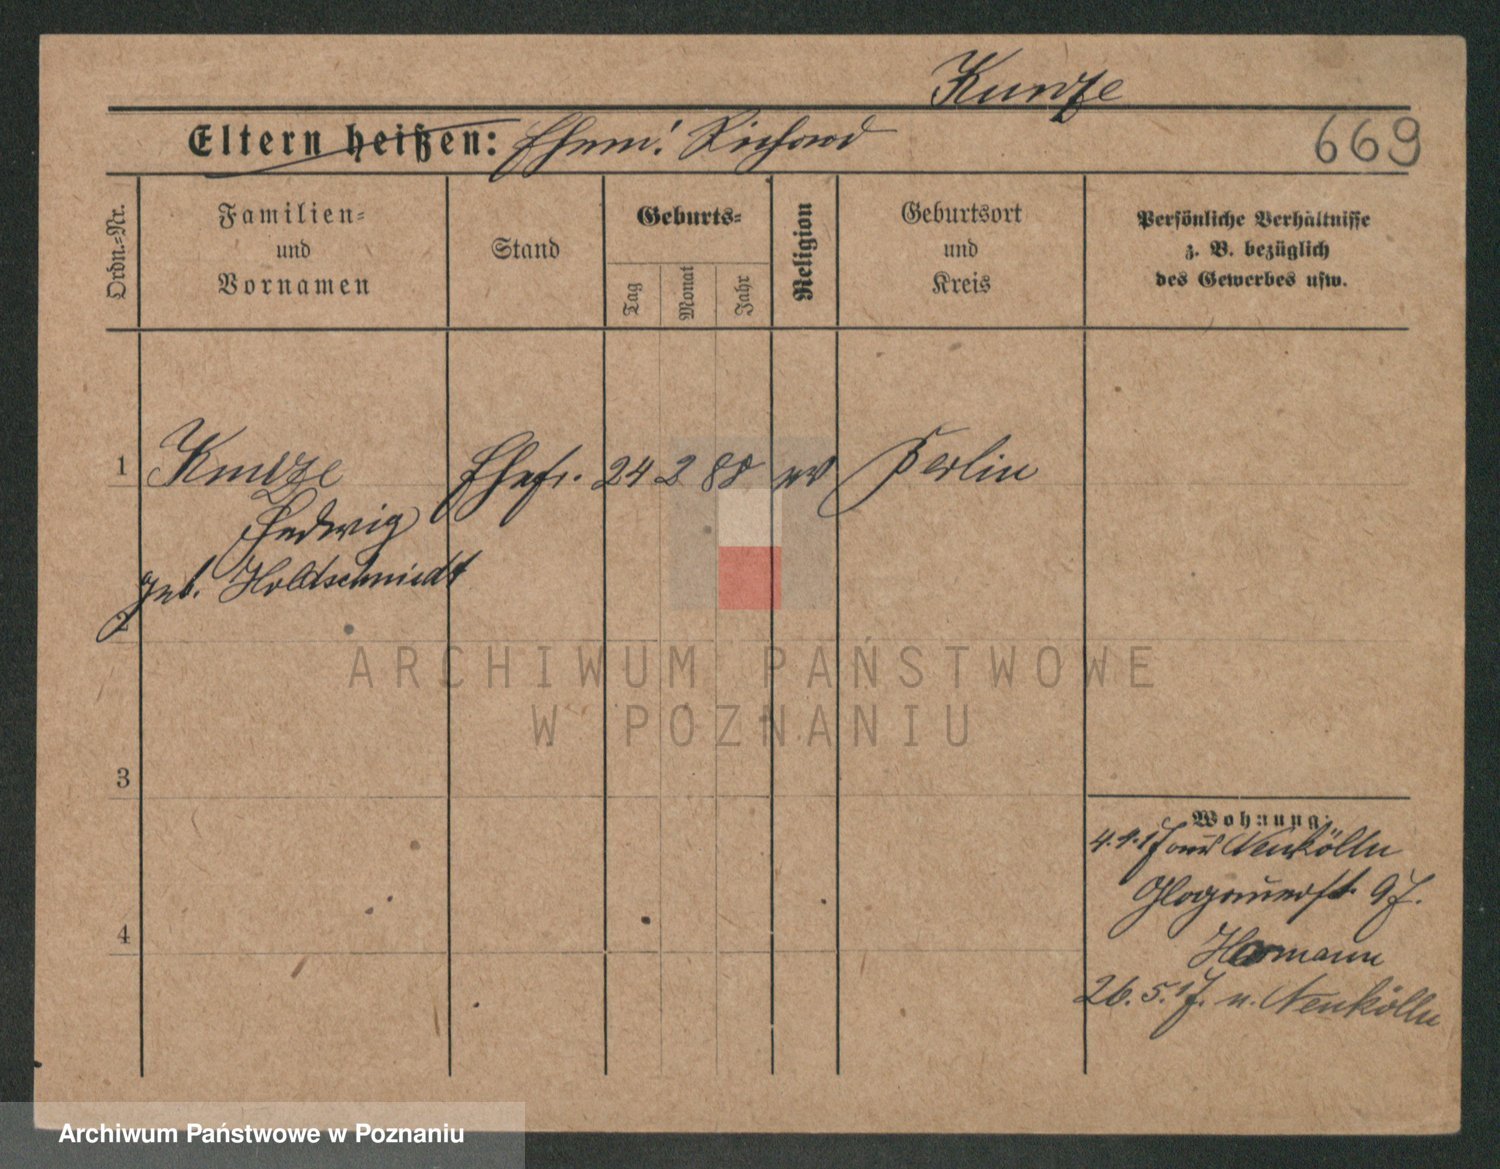 Kunze
Eltern heißen: Ehem: Richard
669
Ordn.=Nr.
Familien=
und
Vornamen
Stand
Geburts=
Tag
Monat
Jahr
Religion
Geburtsort
und
Kreis
Persönliche Verhältnisse
z. B. bezüglich
des Gewerbes usw.
1 Kunze Ehefr. 24 2 88 ev Berlin
Hedwig
geb. Holdschmiedt
2
3
4
Wohnung:
4.4.17 aus Neukölln
Glogauerst. 97.
26.5.17. n. Neukölln
ARCHIWUM PAŃSTWOWE
W POZNANIU
Archiwum Państwowe w Poznaniu